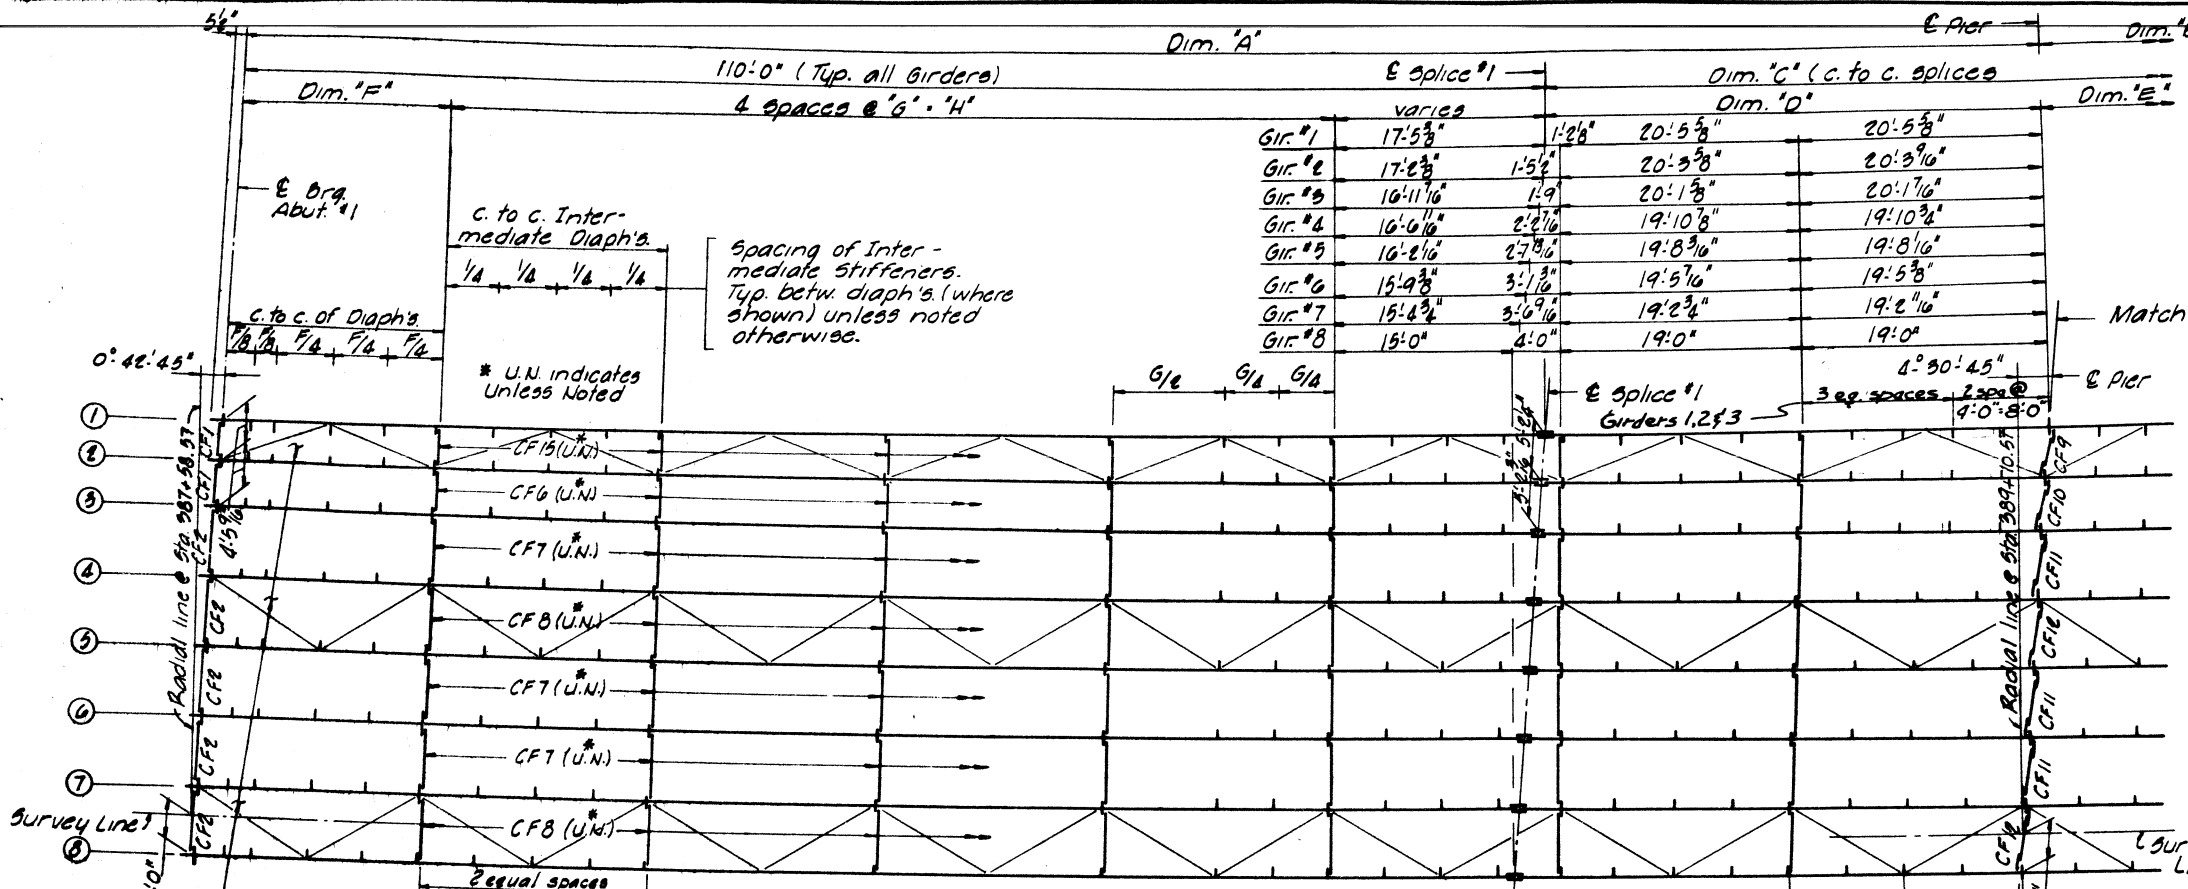 5½"
Dim. "A"
℄ Pier
Dim.
110'-0" (Typ. all Girders)
℄ Splice #1
Dim. "C" (c. to c. splices
Dim. "F"
4 Spaces @ "G" = "H"
varies
Dim. "D"
Dim. "E"
Gir. #1 17'-5⅜" 1'-2⅛" 20'-5⅝" 20'-5⅝"
Gir. #2 17'-2⅜" 1'-5½" 20'-3⅝" 20'-3 9/16"
Gir. #3 16'-11 7/16" 1'-9" 20'-1⅝" 20'-1 7/16"
Gir. #4 16'-6 11/16" 2'-2 7/16" 19'-10⅞" 19'-10¾"
Gir. #5 16'-2 1/16" 2'-7 13/16" 19'-8 3/16" 19'-8 1/16"
Gir. #6 15'-9⅜" 3'-1 3/16" 19'-5 7/16" 19'-5⅜"
Gir. #7 15'-4¾" 3'-6 9/16" 19'-2¾" 19'-2 11/16"
Gir. #8 15'-0" 4'-0" 19'-0" 19'-0"
℄ Brg.
Abut. #1
c. to c. Inter-
mediate Diaph's.
¼ ¼ ¼ ¼
Spacing of Inter-
mediate Stiffeners.
Typ. betw. diaph's. (where
shown) unless noted
otherwise.
c. to c. of Diaph's.
F/8 F/8 F/4 F/4 F/4
0°-42'-45"
* U.N. indicates
Unless Noted
G/2 G/4 G/4
℄ Splice #1
Girders 1, 2 & 3
3 eq. spaces
2 spa @
4'-0"=8'-0"
4°-30'-45"
℄ Pier
Match
1
2
3
4
5
6
7
8
Radial line @ Sta. 387+58.57
CF1
CF1
CF2
CF2
CF2
CF2
CF2
4'-5 9/16"
CF15 (U.N.*)
CF6 (U.N.*)
CF7 (U.N.*)
CF8 (U.N.*)
CF7 (U.N.*)
CF7 (U.N.*)
CF8 (U.N.*)
Radial line @ Sta. 389+10.57
CF9
CF10
CF11
CF12
CF11
CF11
CF12
Survey Line
2 equal spaces